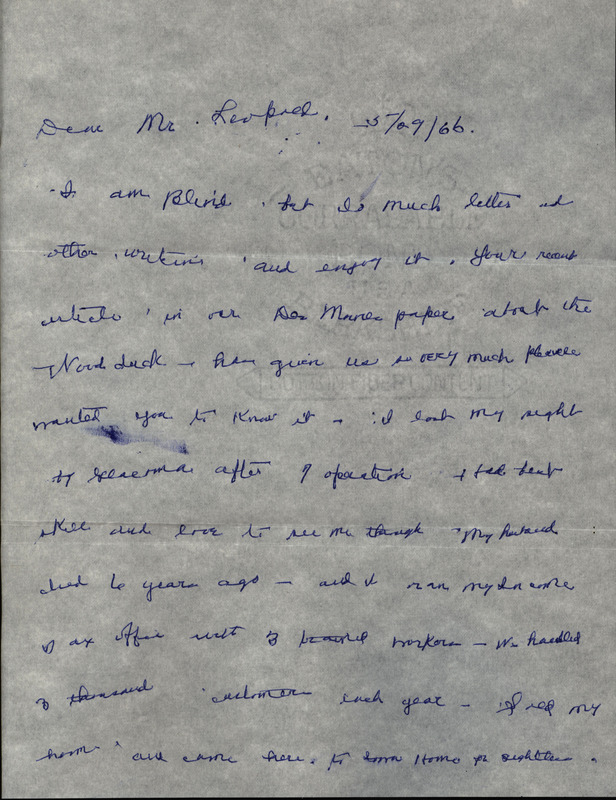 Dear Mr. Leopold. 5/29/66.
I am Blind, but do much letter and
other writing and enjoy it. Your recent
article in our Des Moines paper about the
Wood duck - has given us so very much pleasure
wanted you to know it - I lost my sight
by after 7 operation + the best
skill and love to see me though My husband
died 6 years ago - and I ran my Income
Tax Office with 3 workers - We handled
3 thousand customers each year - I my
home and came here. to Home for sightless.